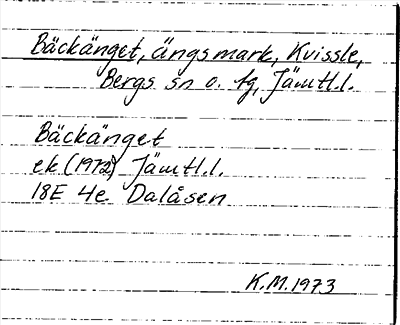 Bäckänget, ängsmark, Kvissle,
Bergs sn o. tg, Jämtl.l.
Bäckänget
ek (1972) Jämtl.l.
18E 4e Dalåsen
K.M. 1973